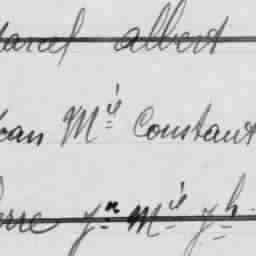 arcel albert
ean Mie Constant
rre Jn Mie Jh